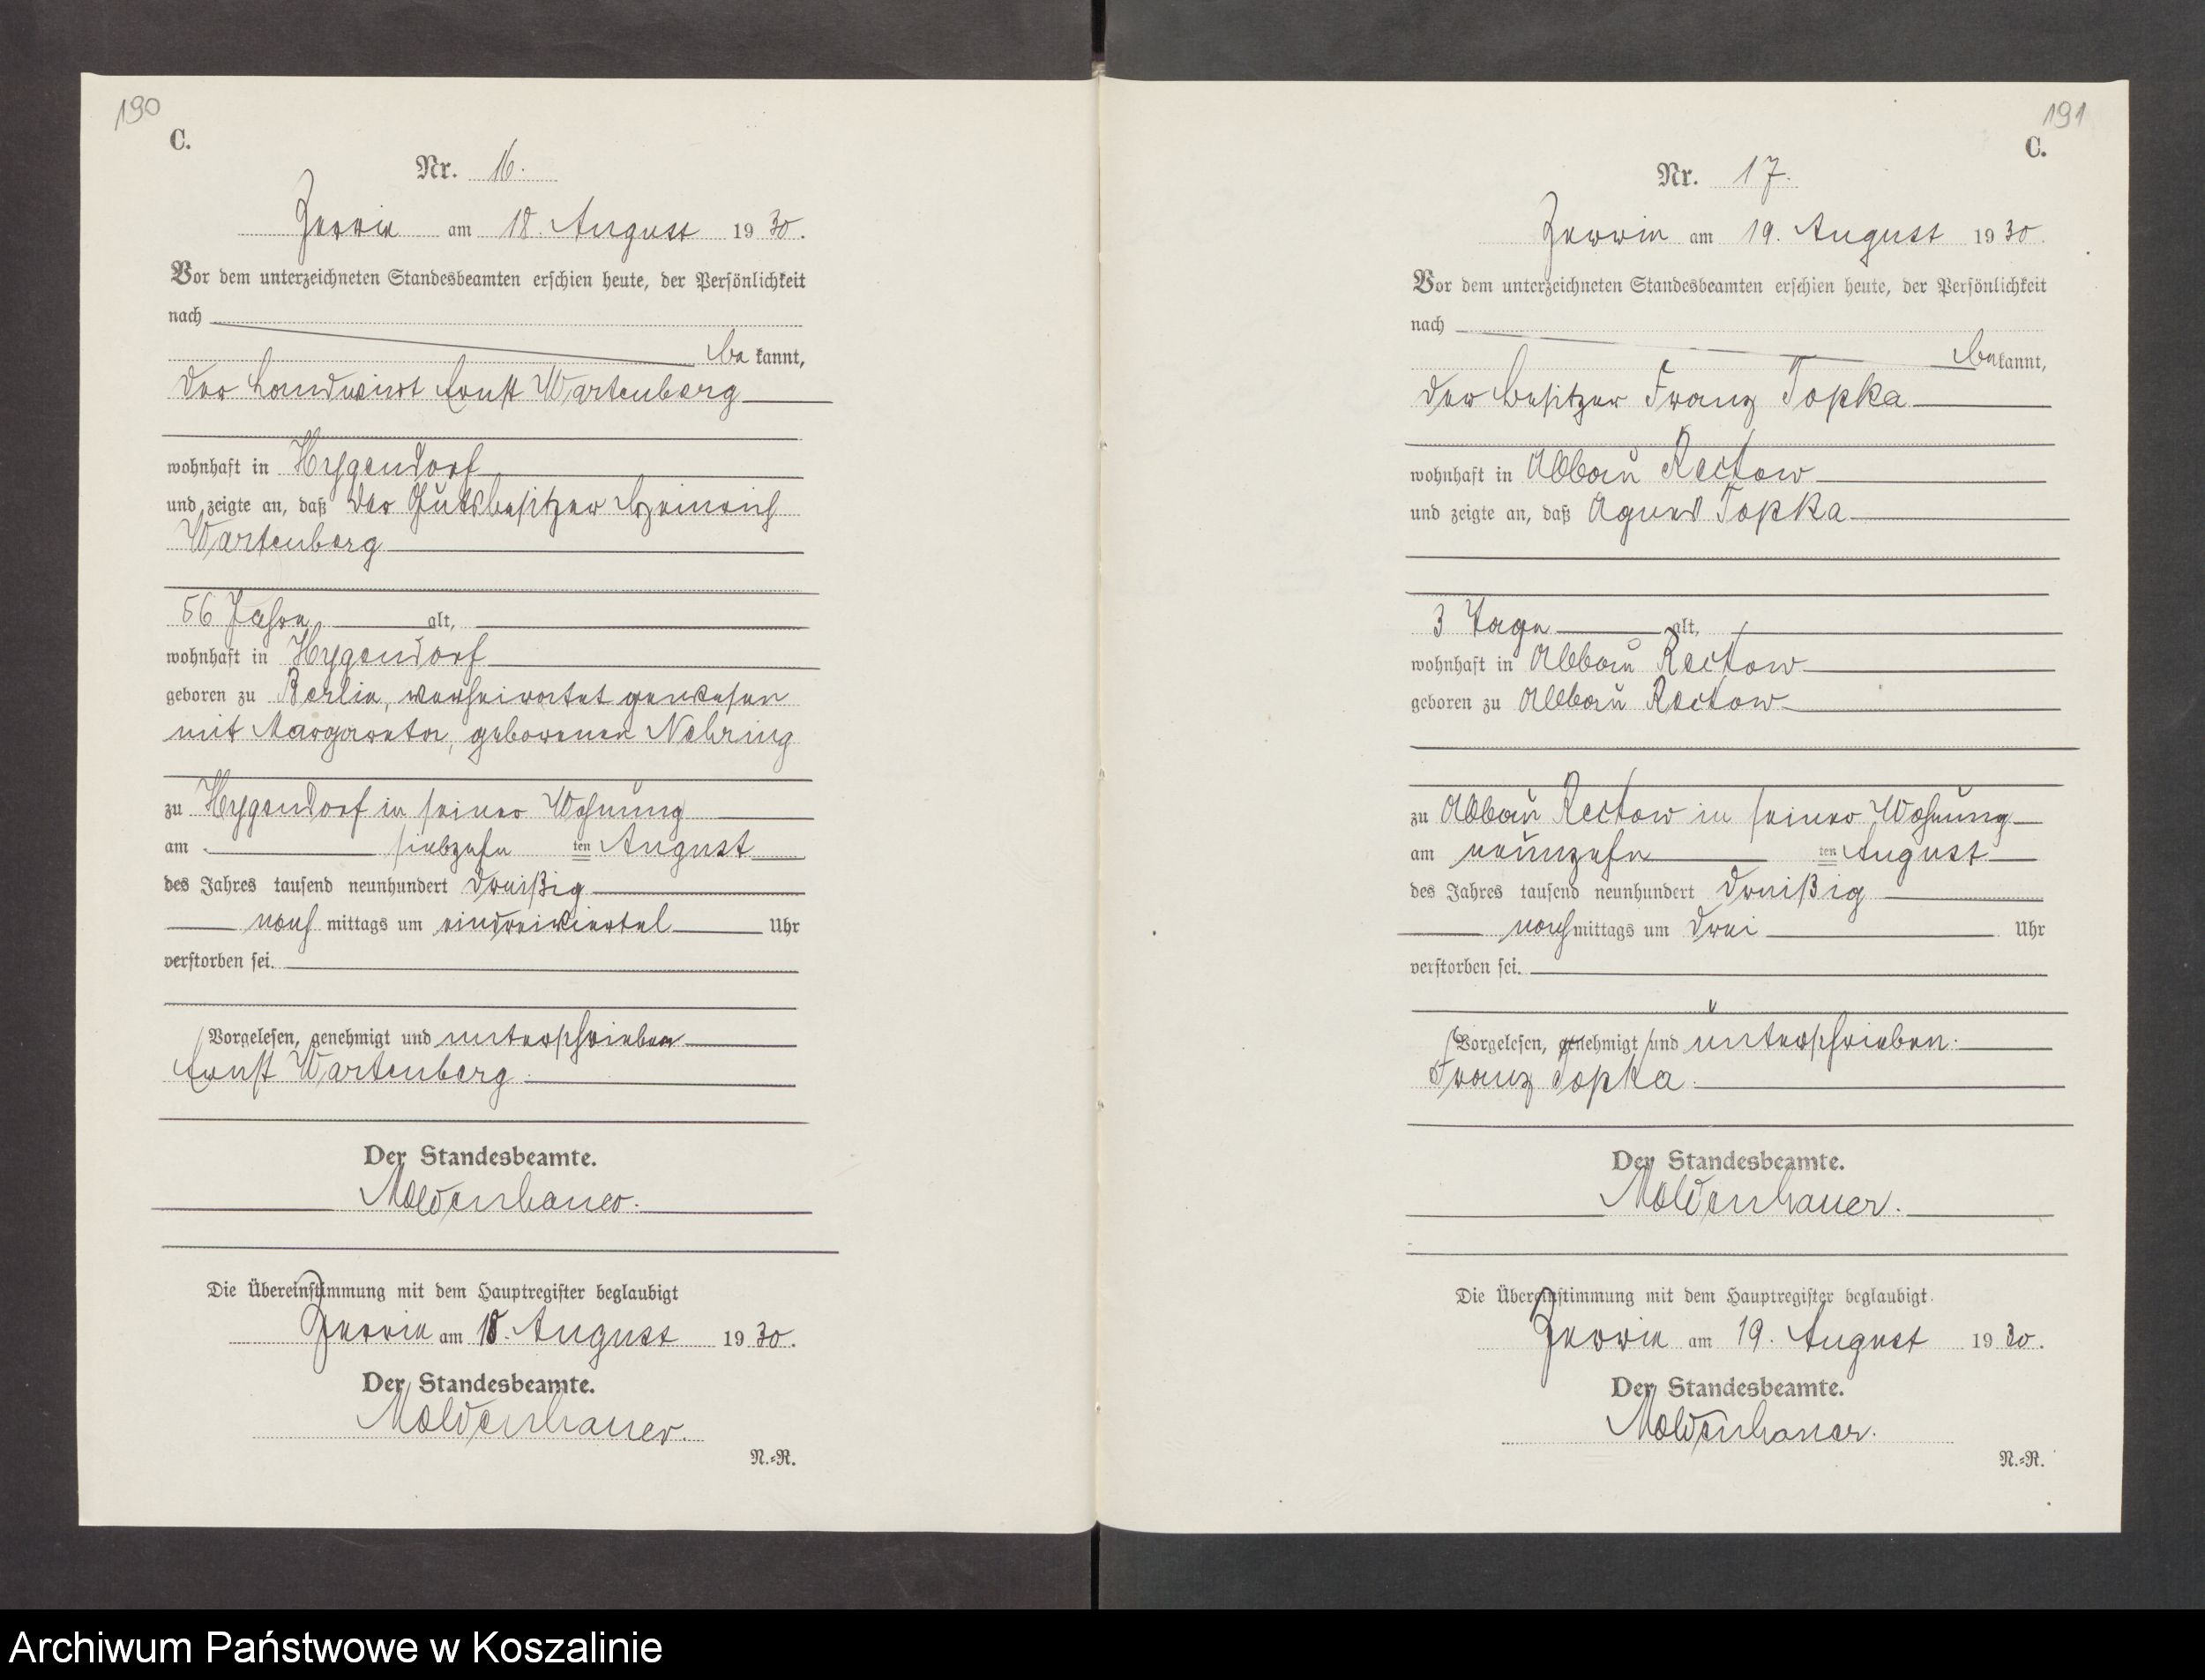 190
C.
Nr. 16.
Zerrin am 18. August 1930.
Vor dem unterzeichneten Standesbeamten erschien heute, der Persönlichkeit
nach
be kannt,
der Landwirt Ernst Wartenberg
wohnhaft in Hygendorf
und zeigte an, daß der Gutsbesitzer Heinrich
Wartenberg
56 Jahre alt,
wohnhaft in Hygendorf
geboren zu Berlin, verheiratet gewesen
mit Margarete, geborenen Nehring
zu Hygendorf in seiner Wohnung
am siebzehn ten August
des Jahres tausend neunhundert dreißig
nach mittags um eindreiviertel Uhr
verstorben sei.
Vorgelesen, genehmigt und unterschrieben
Ernst Wartenberg
Der Standesbeamte.
Moldenhauer.
Die Übereinstimmung mit dem Hauptregister beglaubigt
Zerrin am 18. August 1930.
Der Standesbeamte.
Moldenhauer.
N.=R.
191
C.
Nr. 17.
Zerrin am 19. August 1930.
Vor dem unterzeichneten Standesbeamten erschien heute, der Persönlichkeit
nach
bekannt,
der Besitzer Franz Topka
wohnhaft in Abbau Reckow
und zeigte an, daß Agnes Topka
3 Tage alt,
wohnhaft in Abbau Reckow
geboren zu Abbau Reckow
zu Abbau Reckow in seiner Wohnung
am neunzehn ten August
des Jahres tausend neunhundert dreißig
nach mittags um drei Uhr
verstorben sei.
Vorgelesen, genehmigt und unterschrieben.
Franz Topka.
Der Standesbeamte.
Moldenhauer.
Die Übereinstimmung mit dem Hauptregister beglaubigt.
Zerrin am 19. August 1930.
Der Standesbeamte.
Moldenhauer.
N.=R.
Archiwum Państwowe w Koszalinie